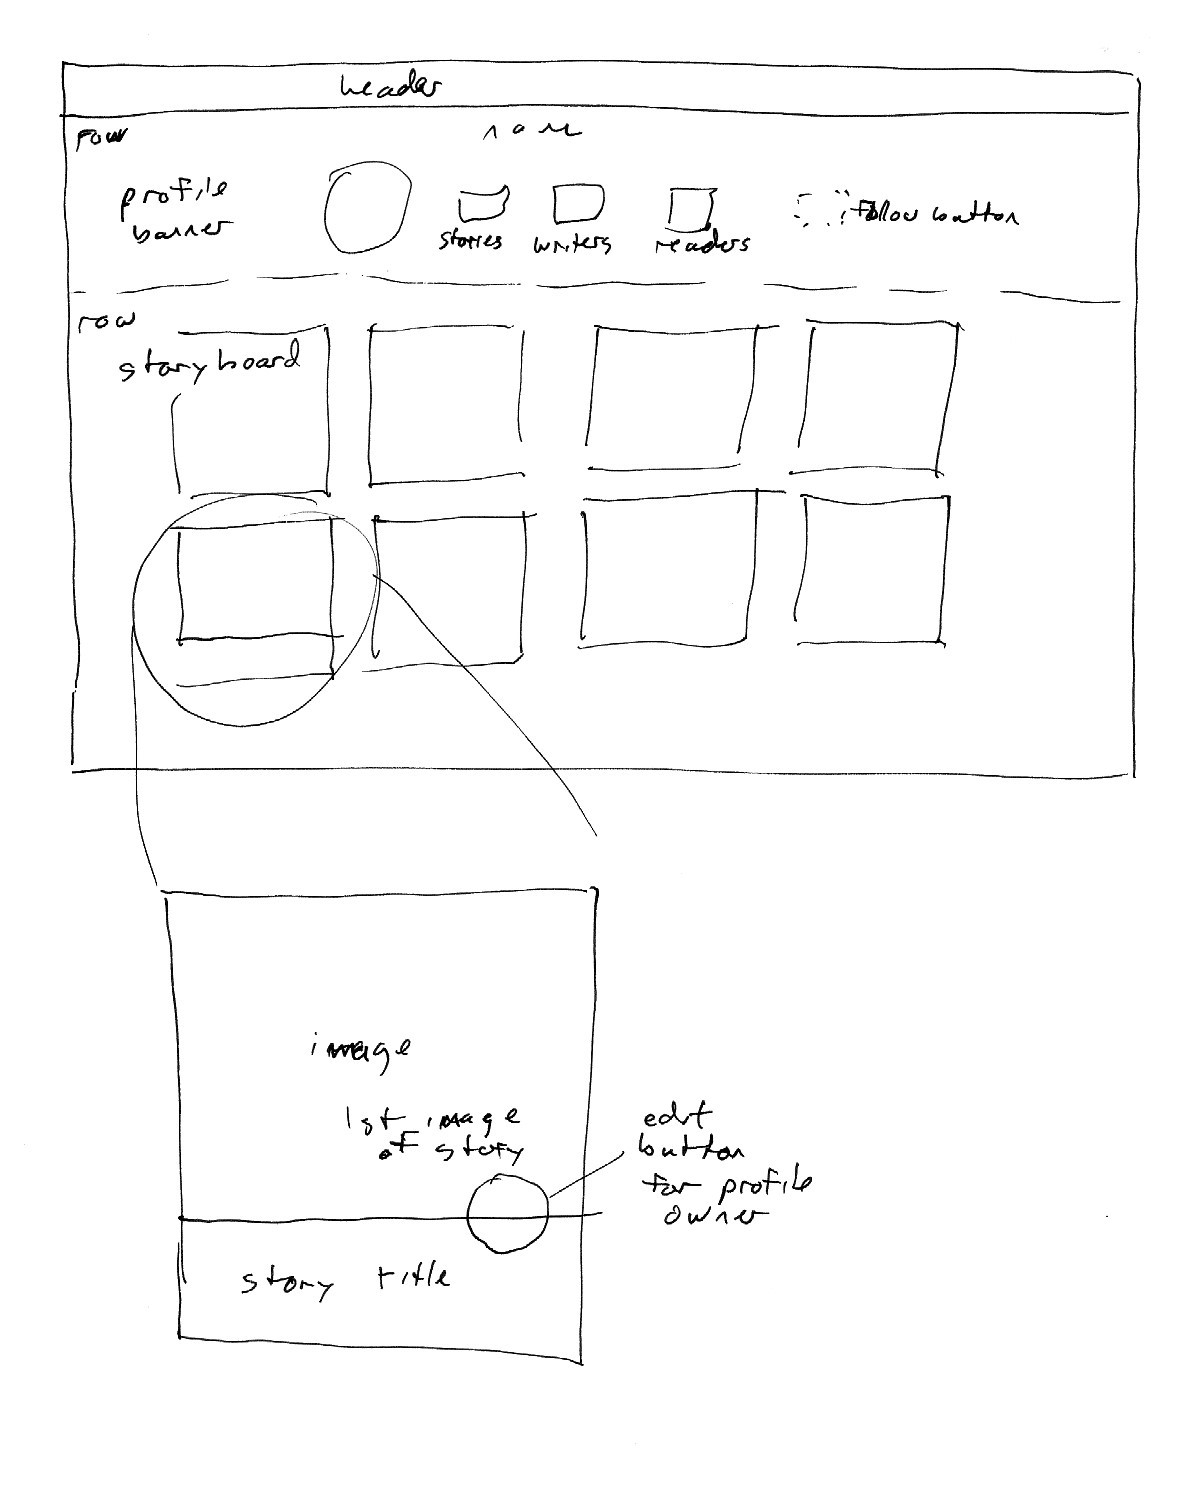 header
row
name
profile
banner
stories
writers
readers
follow button
row
storyboard
image
1st image
of story
edit
button
for profile
owner
story title